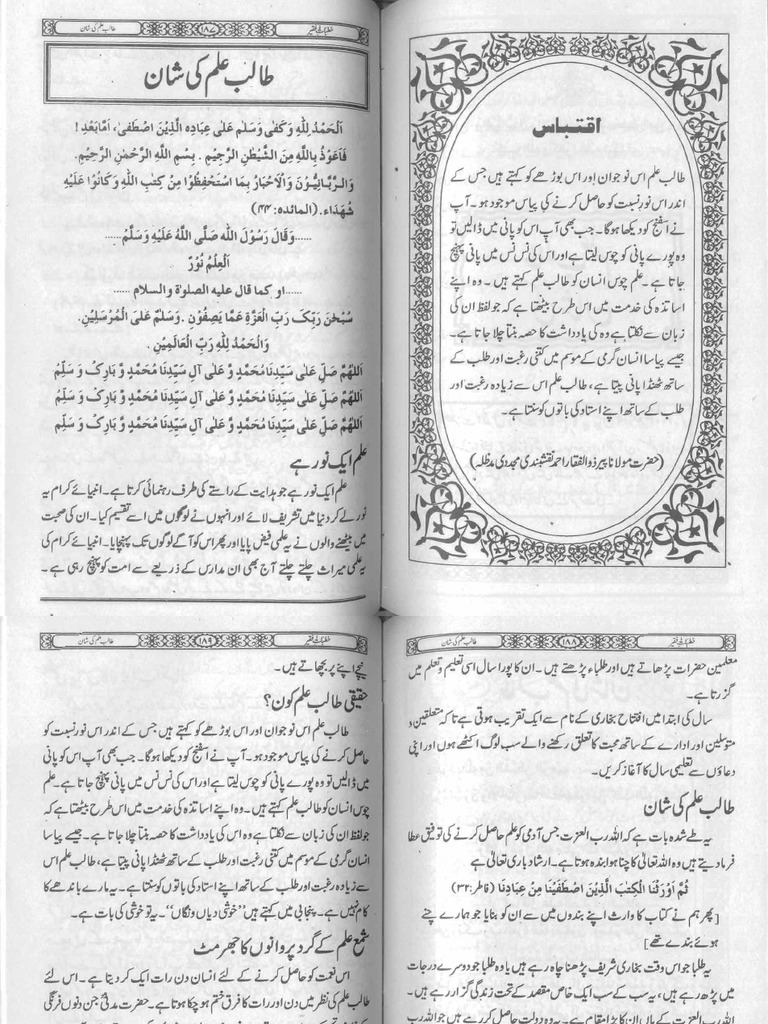 اقتباس
طالب علم اس نوجوان اور اس بوڑھے کو کہتے ہیں جس کے
اندر اس نور نسبت کو حاصل کرنے کی پیاس موجود ہو۔ آپ
نے اسفنج کو دیکھا ہوگا۔ جب بھی آپ اس کو پانی میں ڈالیں تو
وہ پورے پانی کو چوس لیتا ہے اور اس کی نس نس میں پانی پہنچ
جاتا ہے۔ علم چوس انسان کو طالب علم کہتے ہیں۔ وہ اپنے
اساتذہ کی خدمت میں اس طرح بیٹھتا ہے کہ جو لفظ ان کی
زبان سے نکلتا ہے وہ کی یادداشت کا حصہ بنتا چلا جاتا ہے۔
جیسے پیاسا انسان گرمی کے موسم میں کتنی رغبت اور طلب کے
ساتھ ٹھنڈا پانی پیتا ہے، طالب علم اس سے زیادہ رغبت اور
طلب کے ساتھ اپنے استاد کی باتوں کو سنتا ہے۔
(حضرت مولانا پیر ذوالفقار احمد نقشبندی مجددی مدظلہ)
خطبات فقیر ۱۸۷ طالب علم کی شان
طالب علم کی شان
اَلْحَمْدُ لِلّٰهِ وَكَفٰى وَسَلٰمٌ عَلٰى عِبَادِهِ الَّذِيْنَ اصْطَفٰى، اَمَّابَعْدِ !
فَاَعُوْذُ بِاللّٰهِ مِنَ الشَّيْطٰنِ الرَّجِيْمِ ۔ بِسْمِ اللّٰهِ الرَّحْمٰنِ الرَّحِيْمِ۔
وَالرَّبَّانِيُّوْنَ وَالْاَحْبَارُ بِمَا اسْتُحْفِظُوْا مِنْ كِتٰبِ اللّٰهِ وَكَانُوْا عَلَيْهِ
شُهَدَاءَ۔ (المائدہ:۴۴)
......وَقَالَ رَسُوْلُ اللّٰه صَلَّى اللّٰهُ عَلَيْهِ وَسَلَّمُ......
اَلْعِلْمُ نُوْرٌ
......او كما قال عليه الصلوة والسلام ......
سُبْحٰنَ رَبِّكَ رَبِّ الْعِزَّةِ عَمَّا يَصِفُوْنَ ۔ وَسَلٰمٌ عَلَى الْمُرْسَلِيْنَ۔
وَالْحَمْدُ لِلّٰهِ رَبِّ الْعَالَمِيْنَ ۔
اَللّٰهُمَّ صَلِّ عَلٰى سَيِّدِنَا مُحَمَّدٍ وَّ عَلٰى آلِ سَيِّدِنَا مُحَمَّدٍ وَّ بَارِكْ وَ سَلِّمْ
اَللّٰهُمَّ صَلِّ عَلٰى سَيِّدِنَا مُحَمَّدٍ وَّ عَلٰى آلِ سَيِّدِنَا مُحَمَّدٍ وَّ بَارِكْ وَ سَلِّمْ
اَللّٰهُمَّ صَلِّ عَلٰى سَيِّدِنَا مُحَمَّدٍ وَّ عَلٰى آلِ سَيِّدِنَا مُحَمَّدٍ وَّ بَارِكْ وَ سَلِّمْ
علم ایک نور ہے
علم ایک نور ہے جو ہدایت کے راستے کی طرف رہنمائی کرتا ہے۔ انبیائے کرام یہ
نور لے کر دنیا میں تشریف لائے اور انہوں نے لوگوں میں اسے تقسیم کیا۔ ان کی صحبت
میں بیٹھنے والوں نے یہ علمی فیض پایا اور پھر اس کو آگے لوگوں تک پہنچایا۔ انبیائے کرام کی
یہ علمی میراث چلتے چلتے آج بھی ان مدارس کے ذریعے سے امت کو پہنچ رہی ہے۔
خطبات فقیر ۱۸۸ طالب علم کی شان
معلمین حضرات پڑھاتے ہیں اور طلباء پڑھتے ہیں۔ ان کا پورا سال اسی تعلیم و تعلم میں
گزرتا ہے۔
سال کی ابتدا میں افتتاح بخاری کے نام سے ایک تقریب ہوتی ہے تا کہ متعلقین و
متوسلین اور ادارے کے ساتھ محبت کا تعلق رکھنے والے سب لوگ اکٹھے ہوں اور اپنی
دعاؤں سے تعلیمی سال کا آغاز کریں۔
طالب علم کی شان
یہ طے شدہ بات ہے کہ اللہ رب العزت جس آدمی کو علم حاصل کرنے کی توفیق عطا
فرما دیتے ہیں وہ اللہ تعالیٰ کا چنا ہوا بندہ ہوتا ہے۔ ارشاد باری تعالیٰ ہے
ثُمَّ اَوْرَثْنَا الْكِتٰبَ الَّذِيْنَ اصْطَفَيْنَا مِنْ عِبَادِنَا (فاطر:۳۲)
[ پھر ہم نے کتاب کا وارث اپنے بندوں میں سے ان کو بنایا جو ہمارے چنے
ہوئے بندے تھے ]
یہ طلبا جو اس وقت بخاری شریف پڑھنا چاہ رہے ہیں یا وہ طلبا جو دوسرے درجات
میں پڑھ رہے ہیں، یہ سب کے سب ایک خاص مقصد کے تحت زندگی گزار رہے ہیں۔
اللہ رب العزت کے ہاں ان کا بڑا مقام ہے۔ یہ وہ دولت حاصل کر رہے ہیں جو اللہ رب
خطبات فقیر ۱۸۹ طالب علم کی شان
نیچے اپنے پر بچھاتے ہیں۔
حقیقی طالب علم کون؟
طالب علم اس نوجوان اور اس بوڑھے کو کہتے ہیں جس کے اندر اس نور نسبت کو
حاصل کرنے کی پیاس موجود ہو۔ آپ نے اسفنج کو دیکھا ہوگا۔ جب بھی آپ اس کو پانی
میں ڈالیں تو وہ پورے پانی کو چوس لیتا ہے اور اس کی نس نس میں پانی پہنچ جاتا ہے۔ علم
چوس انسان کو طالب علم کہتے ہیں۔ وہ اپنے اساتذہ کی خدمت میں اس طرح بیٹھتا ہے کہ
جو لفظ ان کی زبان سے نکلتا ہے وہ اس کی یادداشت کا حصہ بنتا چلا جاتا ہے۔ جیسے پیاسا
انسان گرمی کے موسم میں کتنی رغبت اور طلب کے ساتھ ٹھنڈا پانی پیتا ہے، طالب علم اس
سے زیادہ رغبت اور طلب کے ساتھ اپنے استاد کی باتوں کو سنتا ہے۔ یہ مارے باندھے کا
کام نہیں ہے۔ پنجابی میں کہتے ہیں ''خوشی دیاں ونگاں''۔ یہ تو خوشی کی بات ہے۔
شمع علم کے گرد پروانوں کا جھرمٹ
اس نعمت کو حاصل کرنے کے لئے انسان دن رات ایک کر دیتا ہے۔ اس لئے
طالب علم کی نظر میں دن اور رات کا فرق ختم ہو چکا ہوتا ہے۔ حضرت مدنیؒ جن دنوں فرنگی